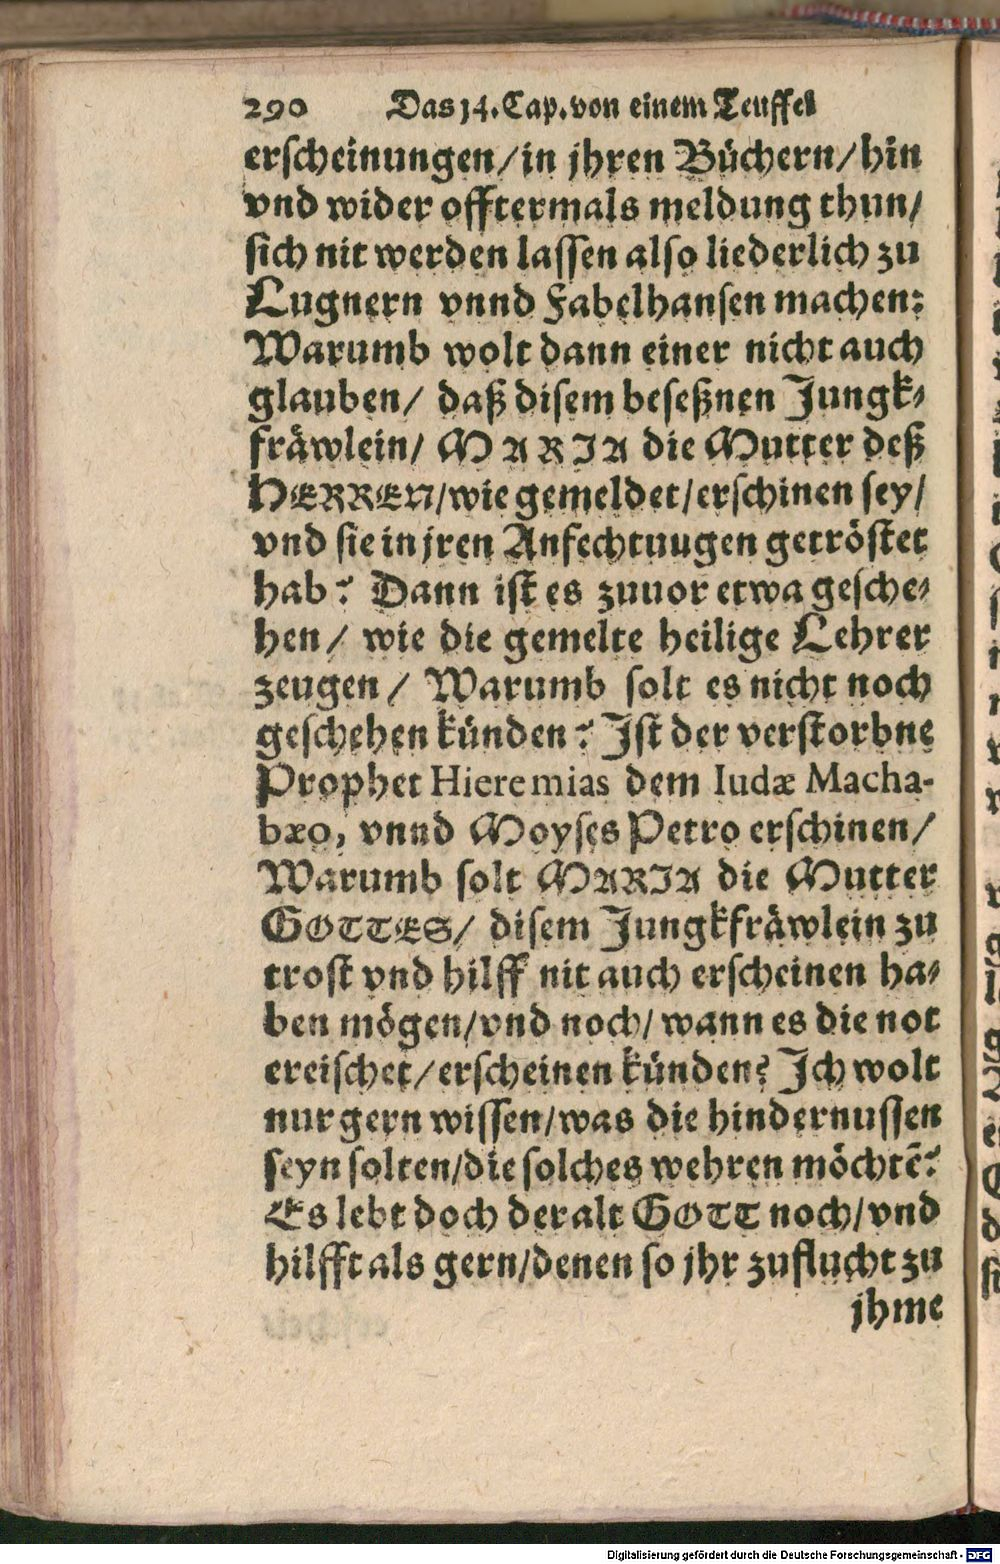 290 Das 14. Cap. von einem Teuffel
erscheinungen/in jhren Büchern/hin
vnd wider offtermals meldung thun/
sich nit werden lassen also liederlich zu
Lugnern vnnd Fabelhansen machen:
Warumb wolt dann einer nicht auch
glauben/ daß disem beseßnen Jungk⸗
fräwlein/ MARIA die Mutter deß
HERREN/wie gemeldet/erschinen sey/
vnd sie in jren Anfechtuugen getröstet
hab? Dann ist es zuuor etwa gesche⸗
hen/ wie die gemelte heilige Lehrer
zeugen/ Warumb solt es nicht noch
geschehen künden? Ist der verstorbne
Prophet Hieremias dem Iudæ Macha-
bæo, vnnd Moyses Petro erschinen/
Warumb solt MARIA die Mutter
GOTTES/ disem Jungkfräwlein zu
trost vnd hilff nit auch erscheinen ha⸗
ben mögen/vnd noch/wann es die not
ereischet/erscheinen künden? Ich wolt
nur gern wissen/was die hindernussen
seyn solten/die solches wehren möchtē?
Es lebt doch der alt GOTT noch/vnd
hilfft als gern/denen so jhr zuflucht zu
jhme
Digitalisierung gefördert durch die Deutsche Forschungsgemeinschaft - DFG